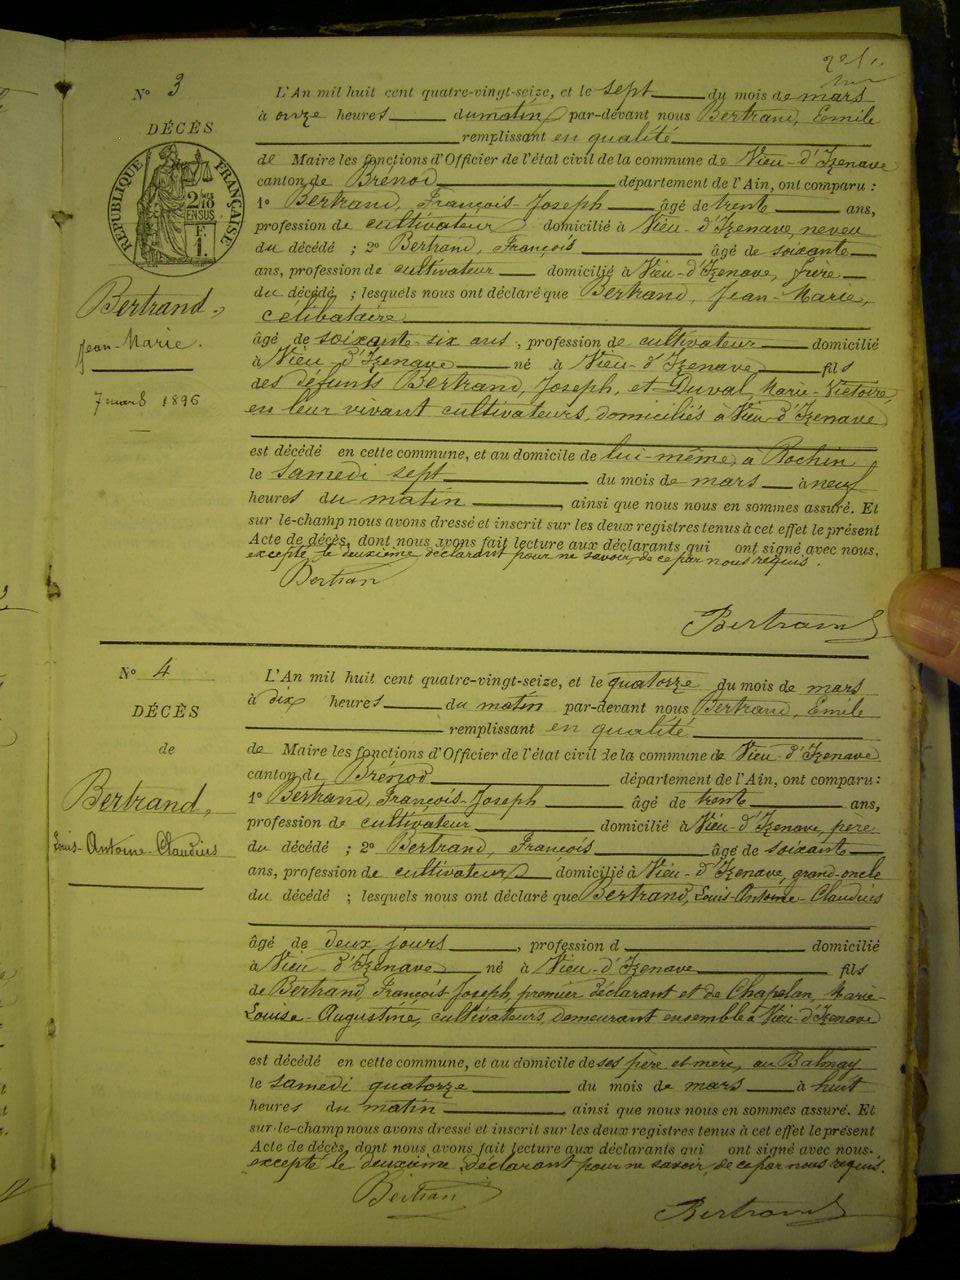 Nº 3
DÉCÈS
RÉPUBLIQUE FRANÇAISE
2 10MES
EN SUS
F.
1.
Bertrand,
Jean-Marie.
7 mars 1896
L'An mil huit cent quatre-vingt-seize, et le sept du mois de mars
à onze heures du matin par-devant nous Bertrand, Emile
remplissant en qualité
de Maire les fonctions d'Officier de l'état civil de la commune de Vieu-d'Izenave
canton de Brénod département de l'Ain, ont comparu :
1º Bertrand, François-Joseph âgé de trente ans,
profession de cultivateur domicilié à Vieu-d'Izenave, neveu
du décédé ; 2º Bertrand, François âgé de soixante
ans, profession de cultivateur domicilié à Vieu-d'Izenave, frère
du décédé ; lesquels nous ont déclaré que Bertrand, Jean-Marie,
célibataire
âgé de soixante-six ans, profession de cultivateur domicilié
à Vieu-d'Izenave né à Vieu-d'Izenave fils
des défunts Bertrand, Joseph, et Duval, Marie-Victoire,
en leur vivant cultivateurs, domiciliés à Vieu-d'Izenave
est décédé en cette commune, et au domicile de lui-même, à Rochin
le samedi sept du mois de mars à neuf
heures du matin, ainsi que nous nous en sommes assuré. Et
sur le-champ nous avons dressé et inscrit sur les deux registres tenus à cet effet le présent
Acte de décès, dont nous avons fait lecture aux déclarants qui ont signé avec nous,
excepté le deuxième déclarant pour ne savoir, de ce par nous requis.
Bertran
Bertrand
Nº 4
DÉCÈS
de
Bertrand,
Louis-Antoine-Claudius
L'An mil huit cent quatre-vingt-seize, et le quatorze du mois de mars
à dix heures du matin par-devant nous Bertrand, Emile
remplissant en qualité
de Maire les fonctions d'Officier de l'état civil de la commune de Vieu-d'Izenave
canton de Brénod département de l'Ain, ont comparu :
1º Bertrand, François-Joseph âgé de trente ans,
profession de cultivateur domicilié à Vieu-d'Izenave, père
du décédé ; 2º Bertrand, François âgé de soixante
ans, profession de cultivateur domicilié à Vieu-d'Izenave, grand-oncle
du décédé ; lesquels nous ont déclaré que Bertrand, Louis-Antoine-Claudius
âgé de deux jours, profession d domicilié
à Vieu-d'Izenave né à Vieu-d'Izenave fils
de Bertrand, François-Joseph, premier déclarant et de Chapelan, Marie-
Louise-Augustine, cultivateurs, demeurant ensemble à Vieu-d'Izenave
est décédé en cette commune, et au domicile de ses père et mère, au Balmay
le samedi quatorze du mois de mars à huit
heures du matin ainsi que nous nous en sommes assuré. Et
sur-le-champ nous avons dressé et inscrit sur les deux registres tenus à cet effet le présent
Acte de décès, dont nous avons fait lecture aux déclarants qui ont signé avec nous.
excepté le deuxième déclarant pour ne savoir, de ce par nous requis.
Bertran
Bertrand